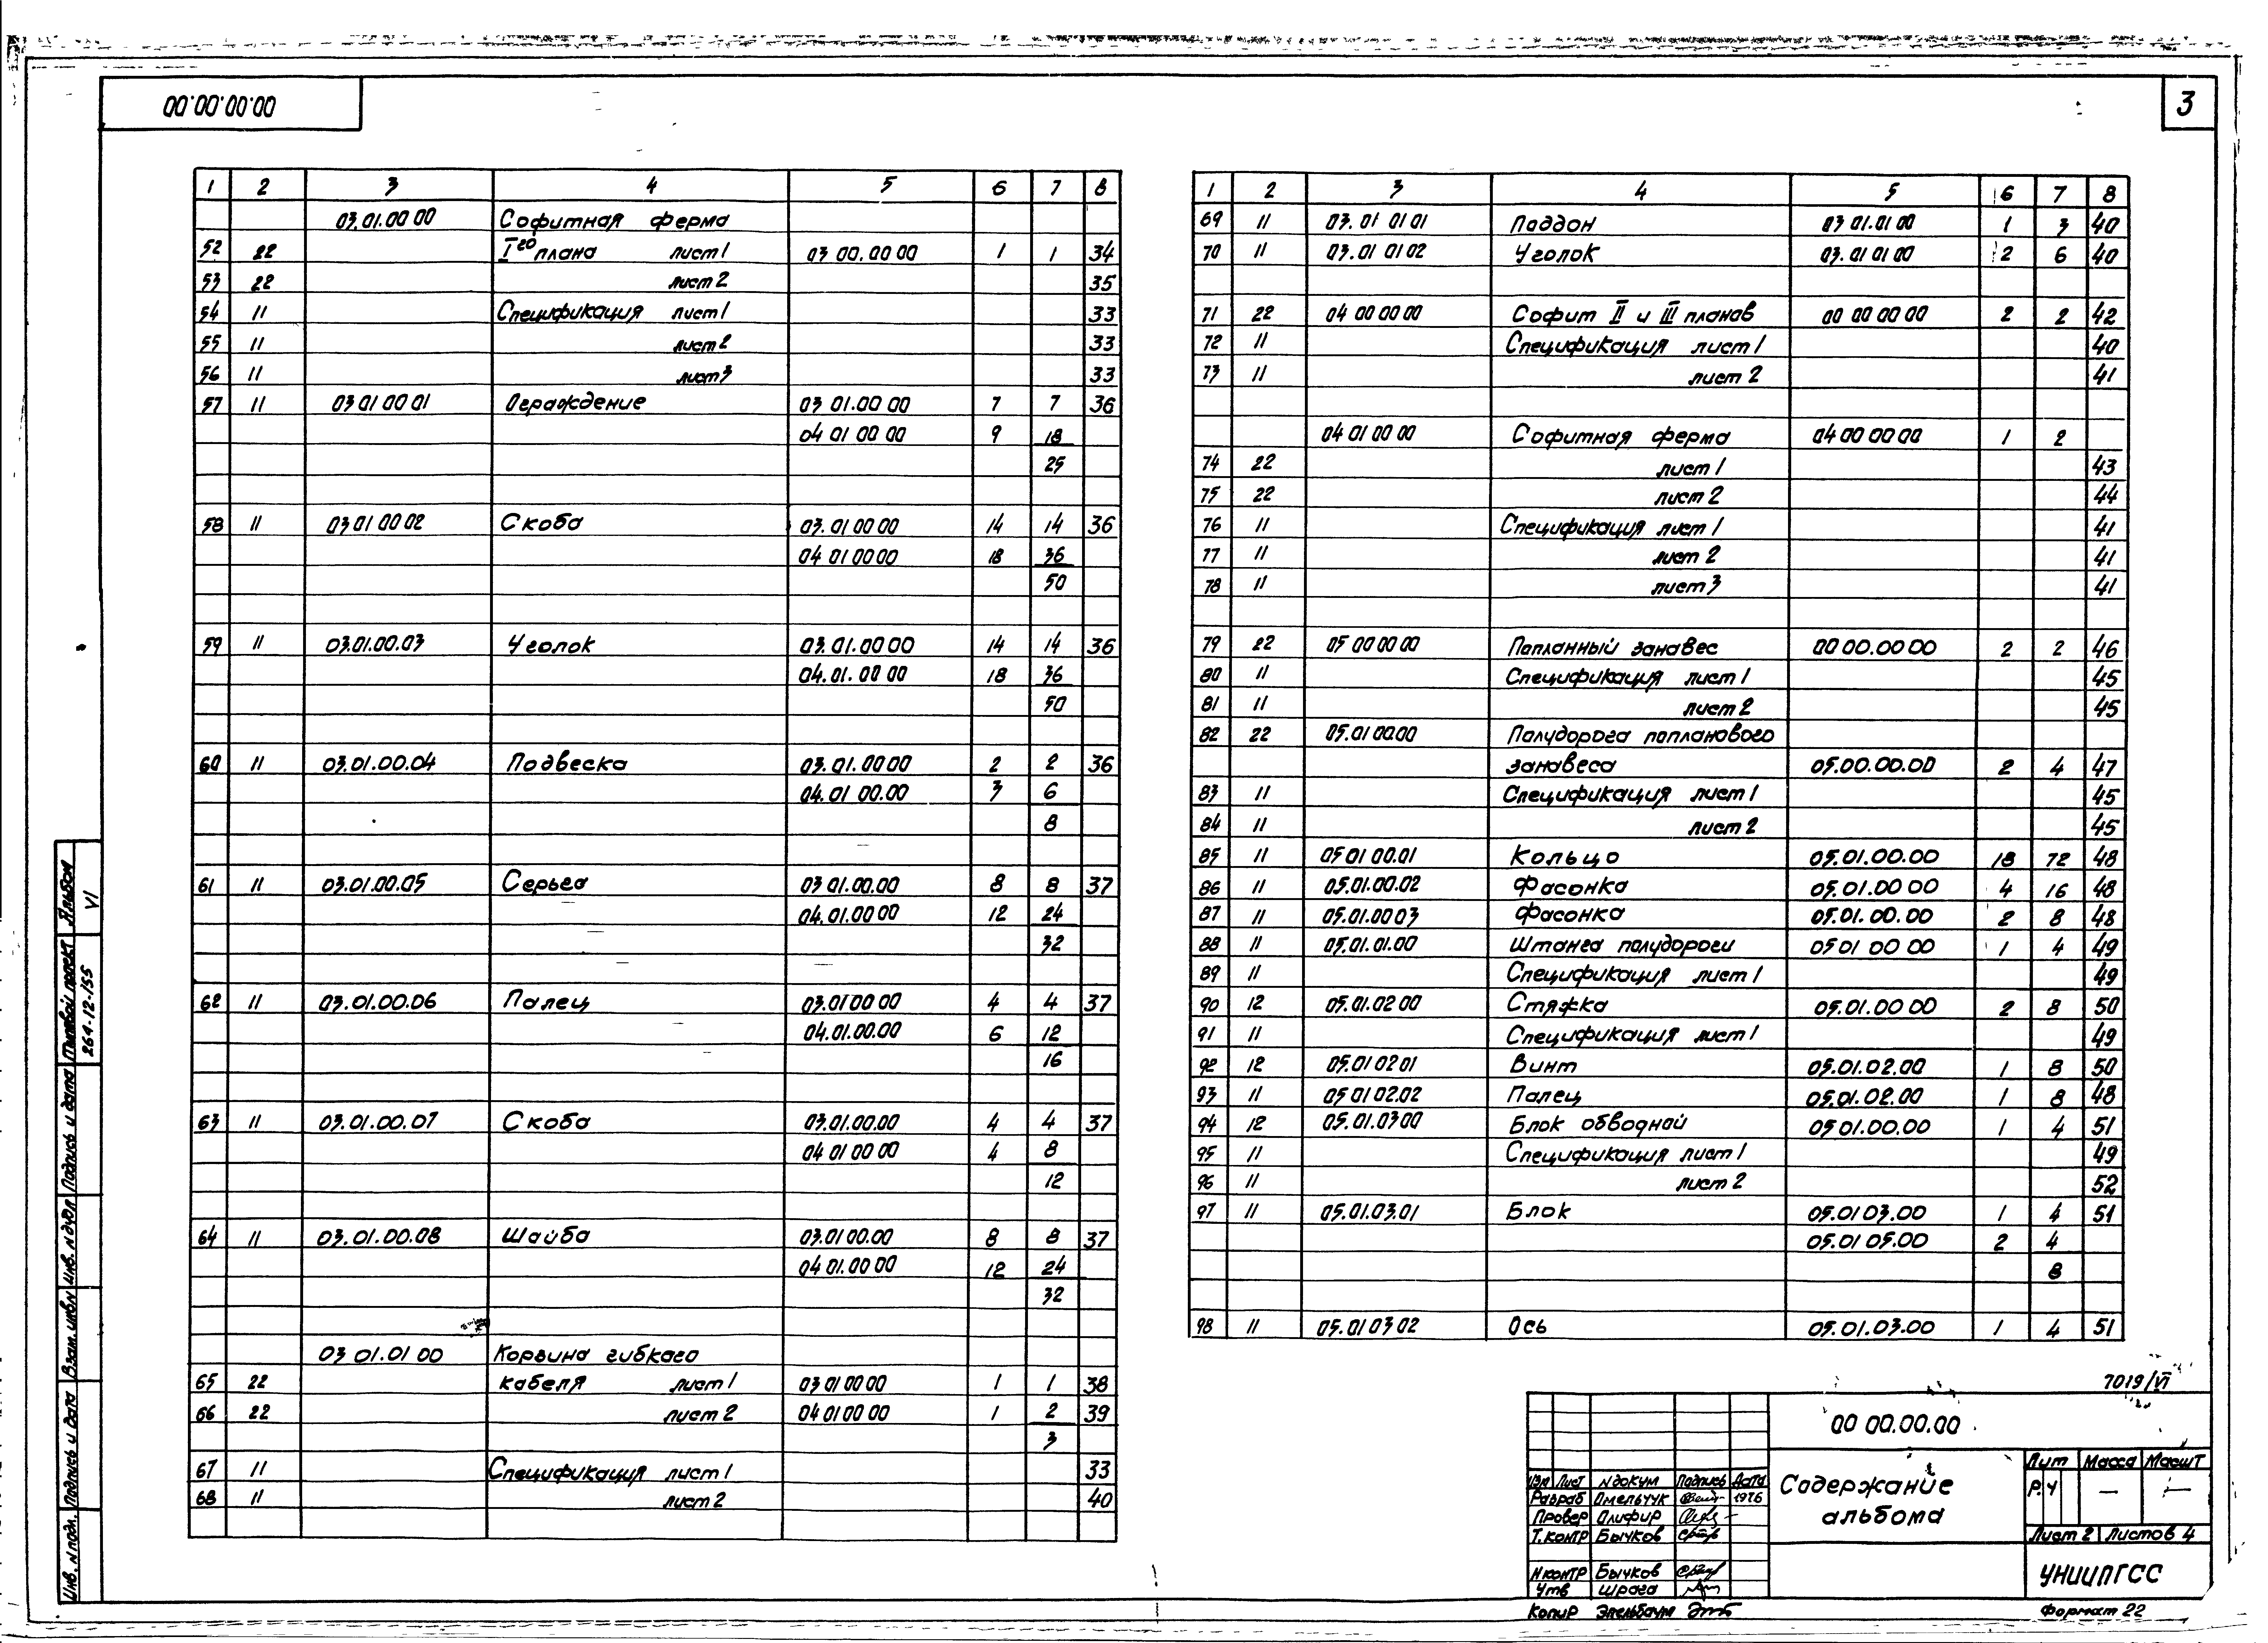 00.00.00.00
3
1 2 3 4 5 6 7 8
03.01.00 00 Софитная ферма
52 22 Iго плана лист 1 03 00.00 00 1 1 34
53 22 лист 2 35
54 11 Спецификация лист 1 33
55 11 лист 2 33
56 11 лист 3 33
57 11 03 01 00 01 Ограждение 03 01.00 00 7 7 36
04 01 00 00 9 18
25
58 11 03 01 00 02 Скоба 03.01 00 00 14 14 36
04 01 00 00 18 36
50
59 11 03.01.00.03 Уголок 03.01.00 00 14 14 36
04.01.00 00 18 36
50
60 11 03.01.00.04 Подвеска 03.01.00 00 2 2 36
04.01 00.00 3 6
8
61 11 03.01.00.05 Серьга 03 01.00.00 8 8 37
04.01.00 00 12 24
32
62 11 03.01.00.06 Палец 03.01 00 00 4 4 37
04.01.00.00 6 12
16
63 11 03.01.00.07 Скоба 03.01.00.00 4 4 37
04 01 00 00 4 8
12
64 11 03.01.00.08 Шайба 03.01 00.00 8 8 37
04 01.00 00 12 24
32
03 01.01 00 Корзина гибкого
65 22 кабеля лист 1 03 01 00 00 1 1 38
66 22 лист 2 04 01 00 00 1 2 39
3
67 11 Спецификация лист 1 33
68 11 лист 2 40
1 2 3 4 5 6 7 8
69 11 03.01 01 01 Поддон 03 01.01 00 1 3 40
70 11 03.01 01 02 Уголок 03.01 01 00 2 6 40
71 22 04 00 00 00 Софит II и III планов 00 00 00 00 2 2 42
72 11 Спецификация лист 1 40
73 11 лист 2 41
04 01 00 00 Софитная ферма 04 00 00 00 1 2
74 22 лист 1 43
75 22 лист 2 44
76 11 Спецификация лист 1 41
77 11 лист 2 41
78 11 лист 3 41
79 22 05 00 00 00 Попланный занавес 00 00.00 00 2 2 46
80 11 Спецификация лист 1 45
81 11 лист 2 45
82 22 05.01 00.00 Полудорога попланового
занавеса 05.00.00.00 2 4 47
83 11 Спецификация лист 1 45
84 11 лист 2 45
85 11 05 01 00.01 Кольцо 05.01.00.00 18 72 48
86 11 05.01.00.02 Фасонка 05.01.00 00 4 16 48
87 11 05.01.00 03 Фасонка 05.01.00.00 2 8 48
88 11 05.01.01.00 Штанга полудороги 05 01 00 00 1 4 49
89 11 Спецификация лист 1 49
90 12 05.01.02 00 Стяжка 05.01.00 00 2 8 50
91 11 Спецификация лист 1 49
92 12 05.01 02 01 Винт 05.01.02.00 1 8 50
93 11 05 01 02.02 Палец 05.01.02.00 1 8 48
94 12 05.01.03 00 Блок обводной 05 01.00.00 1 4 51
95 11 Спецификация лист 1 49
96 11 лист 2 52
97 11 05.01.03.01 Блок 05.01 03.00 1 4 51
05.01 05.00 2 4
8
98 11 05.01 03 02 Ось 05.01.03.00 1 4 51
7019/VI
00 00.00.00
Изм Лист N докум Подпись Дата
Разраб Омельчук 1976
Провер Олифир
Т.контр Бычков
Н контр Бычков
Утв Шрага
Содержание
альбома
Лит Масса Масшт
Р.Ч — —
Лист 2 Листов 4
УНИИПГСС
Копир Эпельбаум
Формат 22
Альбом
VI
Типовой проект
264-12-155
Подпись и дата
Инв. N дубл
Взам. инв N
Подпись и дата
Инв. N подл.